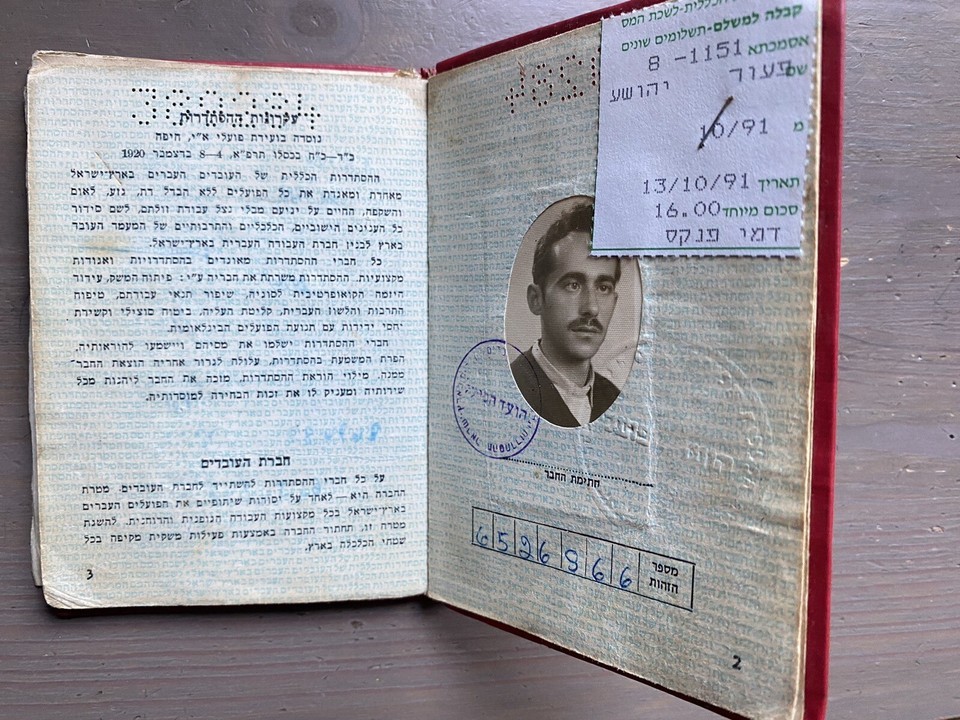 קבלה למשלם-תשלומים שונים
אסמכתא 1151- 8
שם פעור יהושע
מ 10/91
תאריך 13/10/91
סכום מיוחד 16.00
דמי פנקס
חתימת החבר
מספר הזהות
6526966
2
עקרונות ההסתדרות
נוסדה בועידת פועלי א"י, חיפה
כ"ד—כ"ח בכסלו תרפ"א, 4—8 בדצמבר 1920
ההסתדרות הכללית של העובדים העברים בארץ־ישראל
מאחדת ומאגדת את כל הפועלים ללא הבדל דת, גזע, לאום
והשקפה, החיים על יגיעם מבלי נצל עבודת זולתם, לשם סידור
כל הענינים הישוביים, הכלכליים והתרבותיים של המעמד העובד
בארץ לבנין חברת העבודה העברית בארץ־ישראל.
כל חברי ההסתדרות מאוגדים בהסתדרויות ואגודות
מקצועיות. ההסתדרות משרתת את חבריה ע"י: פיתוח המשק, עידוד
היזמה הקואופרטיבית לסוגיה, שיפור תנאי עבודתם, טיפוח
התרבות והלשון העברית, קליטת העליה, ביטוח סוציאלי וקשירת
יחסי ידידות עם תנועת הפועלים הבינלאומית.
חברי ההסתדרות ישלמו את מסיהם ויישמעו להוראותיה.
הפרת המשמעת בהסתדרות, עלולה לגרור אחריה הוצאת החבר
ממנה. מילוי הוראת ההסתדרות, מזכה את החבר ליהנות מכל
שירותיה ומעניק לו את זכות הבחירה למוסדותיה.
חברת העובדים
על כל חברי ההסתדרות להשתייך לחברת העובדים. מטרת
החברה היא — לאחד על יסודות שיתופיים את הפועלים העברים
בארץ־ישראל בכל מקצועות העבודה הגופנית והרוחנית. להשגת
מטרה זו, תחתור החברה באמצעות פעילות משקית מקיפה בכל
שטחי הכלכלה בארץ.
3